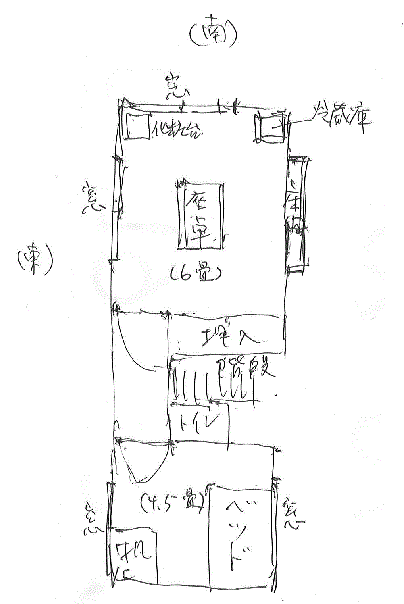 (南)
窓
化粧台
冷蔵庫
窓
座卓
床間
(東)
(6畳)
押入
階段
トイレ
(4.5畳)
窓
ベッド
窓
机